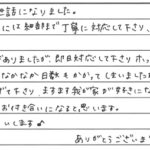 世話になりました。
には細部まで丁寧に対応して下さり、
がありましたが、即日対応して下さり ホッ
なかなか日数もかかってしまいました
て下さり、ますます我が家がすきにな
お付き合いになると思います。
いします♪
ありがとうござい